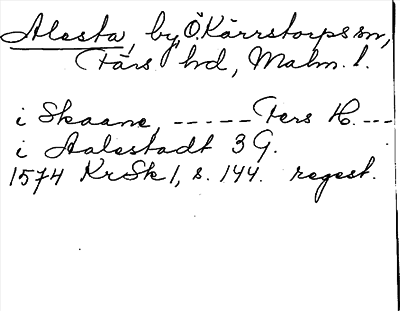 Alesta, by, Ö. Kärrstorps sn,
Färs hd, Malm. l.
i Skaane, ----- Fers H. ---
i Aalestadt 3 G.
1574 KrSk 1, s. 144. regest.